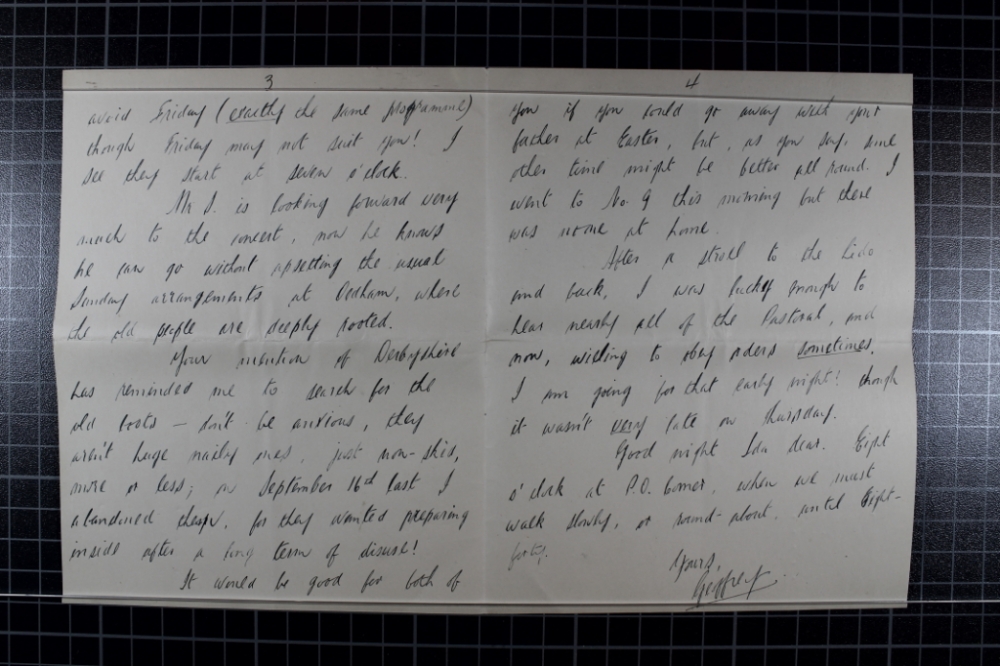 3
avoid Friday (exactly the same programme)
though Friday may not suit you! I
see they start at seven o'clock.
Mr S. is looking forward very
much to the concert, now he knows
he can go without upsetting the usual
Sunday arrangements at Oldham, where
the old people are deeply rooted.
Your mention of Derbyshire
has reminded me to search for the
old boots — don't be anxious, they
aren't huge naily ones, just non-skid,
more or less; on September 16th last I
abandoned them, for they wanted preparing
inside after a long term of disuse!
It would be good for both of
4
you if you could go away with your
father at Easter, but, as you say, some
other time might be better all round. I
went to No. 9 this morning but there
was no one at home.
After a stroll to the Lido
and back, I was lucky enough to
hear nearly all of the Pastoral, and
now, willing to obey orders sometimes,
I am going for that early night! though
it wasn't very late on Thursday.
Good night Ida dear. Eight
o'clock at P.O. Corner, when we must
walk slowly, or round-about, until Eight-
forty.
Yours,
Geoffrey